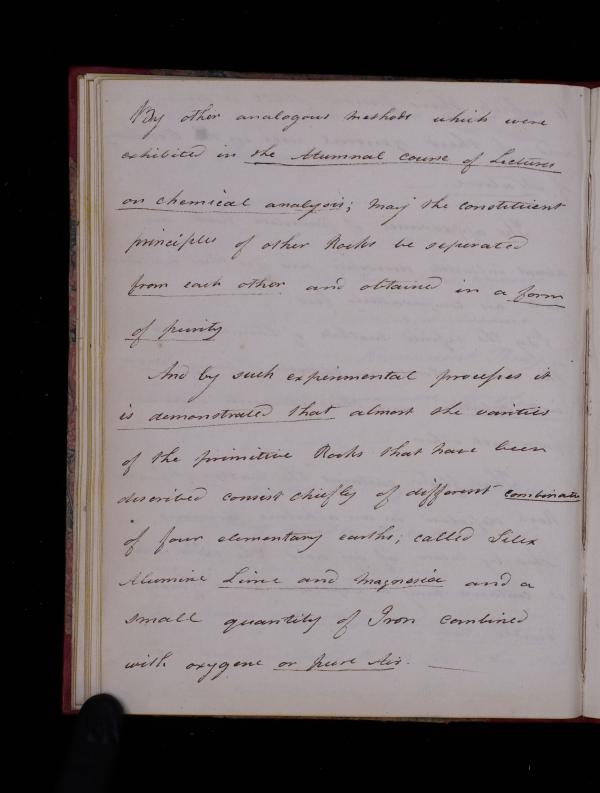 By other analogous methods which were
exhibited in the Autumnal course of Lectures
on chemical analysis; may the constituent
principles of other Rocks be seperated
from each other and obtained in a form
of purity
And by such experimental processes it
is demonstrated that almost the varities
of the primitive Rocks that have been
described consist chiefly of different combinate
of four elementary earths; called Silex
Alumine Lime and Magnesia and a
small quantity of Iron combined
with oxygene or pure Air.